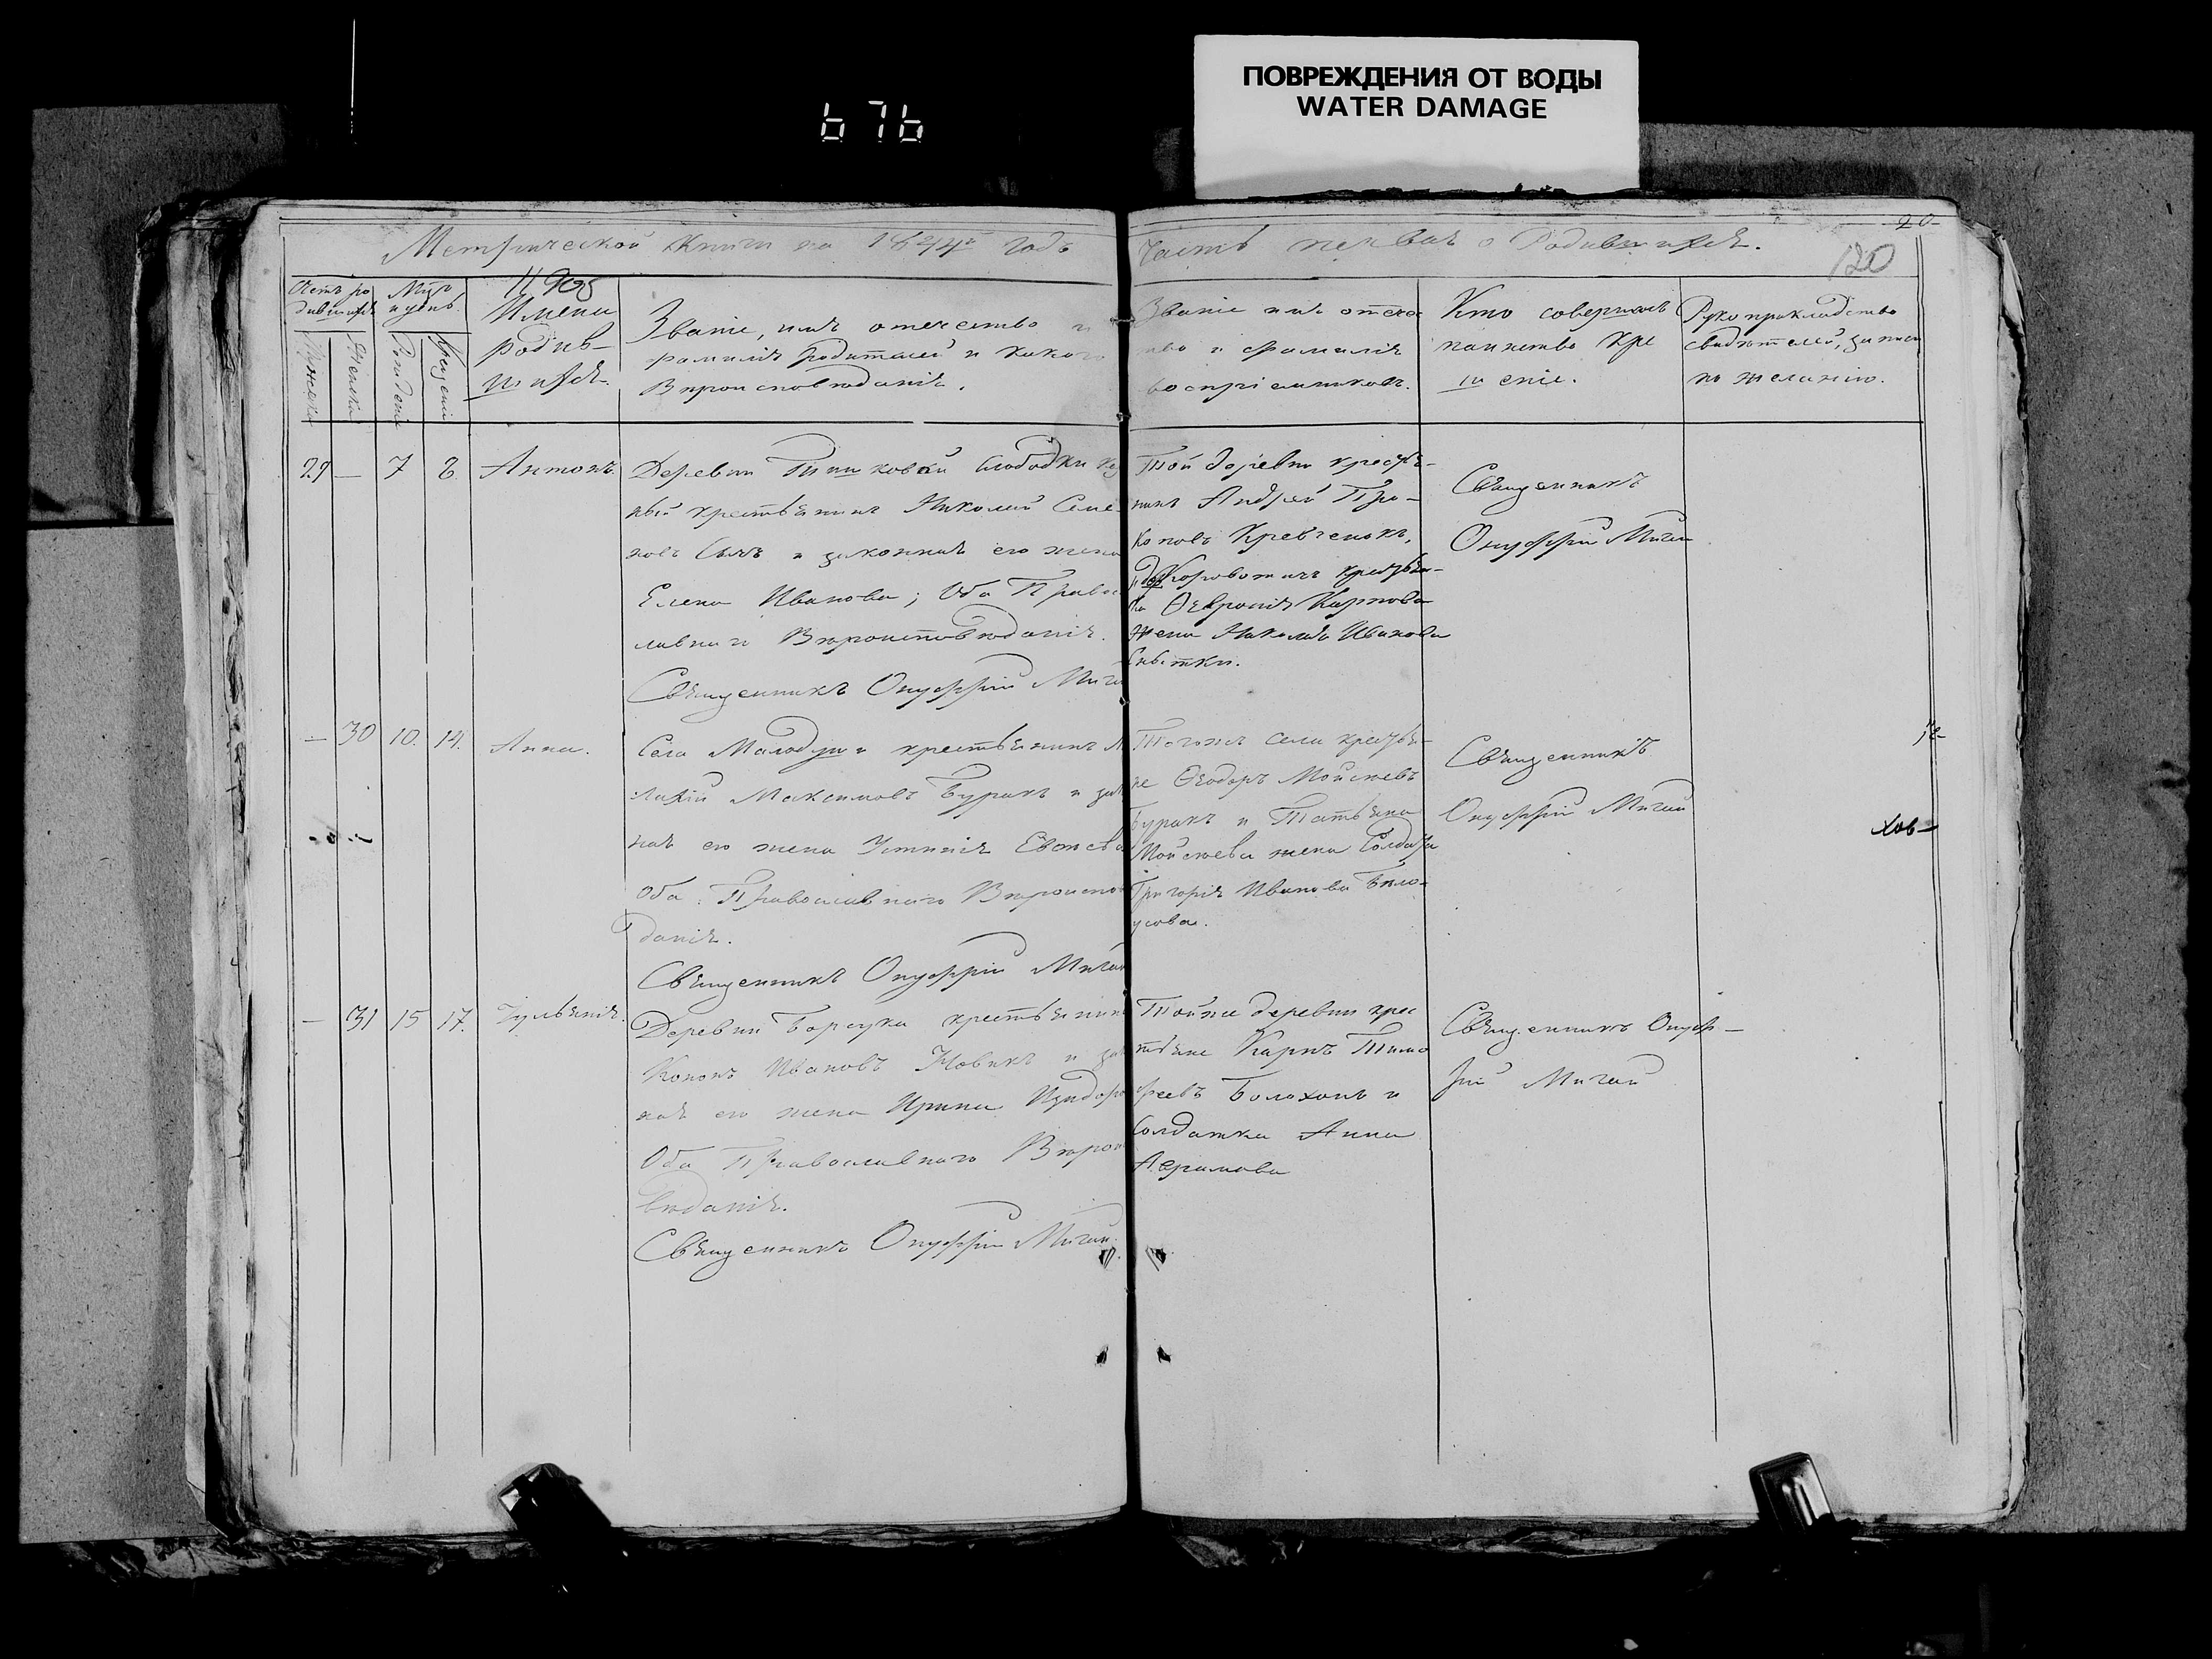 ПОВРЕЖДЕНИЯ ОТ ВОДЫ
WATER DAMAGE
676
20
120
Метрической Книги на 1844й годъ
Часть первая о Родившихся.
Счетъ ро
дившихся
Мужеска
Женска
Мцъ
и день
Рожденія
Крещенія
Имена
родив-
шихся.
Званіе, имя отечество и
фамилія родителей и какого
Вѣроисповѣданія.
Званіе имя отечес
тво и фамилія
воспріемниковъ.
Кто совершалъ
таинство кре
щеніе.
Рукоприкладство
свидѣтелей, записи
по желанію.
29 — 7 8 Антонъ.
Деревни Слободки
ный крестьянинъ Николай Семе
новъ и законная его жена
Елена Иванова; Оба Правос
лавнаго Вѣроисповѣданія.
Священникъ Онуфрій Мигай
Той деревни крестья-
нинъ Андрей Про-
коповъ Кравченокъ,
крестьян-
ка Ѳевронія Карпова
жена Николая Иванова
Сытки.
Священникъ
Онуфрій Мигай
— 30 10. 14. Анна.
Села Малодуши крестьянинъ М
лахій Максимовъ Буракъ и зак
ная его жена Устинія
Оба Православнаго Вѣроиспов
данія.
Священникъ Онуфрій Мигай
Тогожъ села крестья-
не Ѳеодоръ Мойсѣевъ
Буракъ и Татьяна
Мойсѣева жена Солдата
Григорія Иванова Бѣло-
усова.
Священникъ
Онуфрій Мигай
хов-
— 31 15 17. Іульянія.
Деревни Борщука крестьянинъ
Кононъ Ивановъ Новикъ и зак
ная его жена Ирина Изидоро
Оба Православнаго Вѣроис
вѣданія.
Священникъ Онуфрій Мигай.
Тойже деревни крес
тьяне Карпъ Тимо
феевъ Болохонъ и
Солдатка Анна
Авраамова
Священникъ Онуф-
рій Мигай